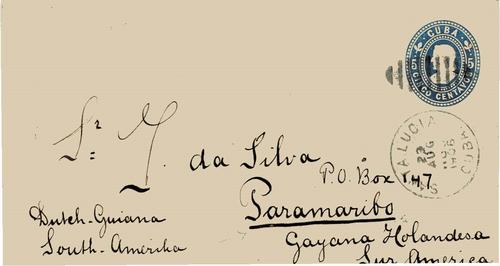 CUBA
5 5
CINCO CENTAVOS
A LUCIA CUBA
AUG
1906
Sr. Y da Silva
P.O. Box
Paramaribo
Dutch-Guiana
South-Amerika
Gayana Holandesa
Sur America